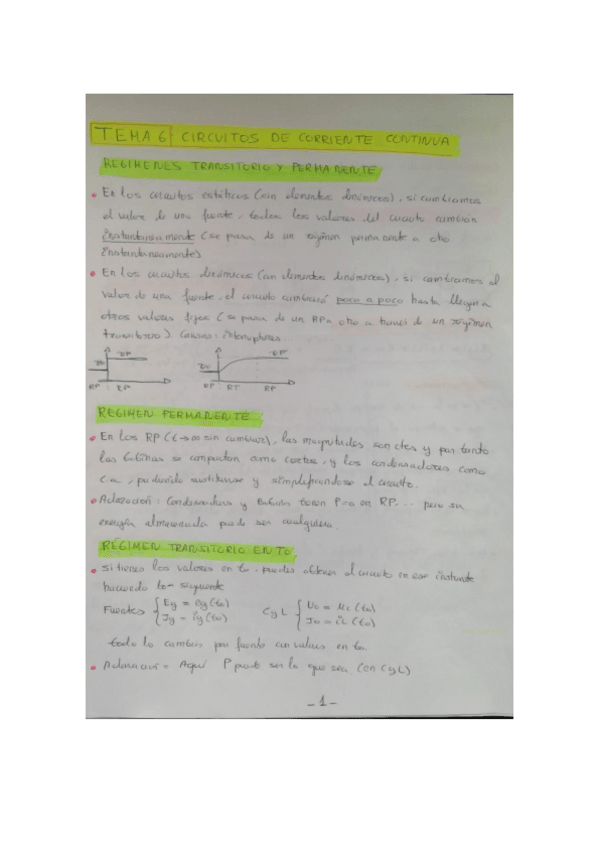 TEMA 6 CIRCUITOS DE CORRIENTE CONTINUA
REGIMENES TRANSITORIO Y PERMANENTE
• En los circuitos estáticos (sin elementos dinámicos), si cambiamos
el valor de una fuente, todos los valores del circuito cambian
instantáneamente (se pasa de un régimen permanente a otro
instantáneamente)
• En los circuitos dinámicos (con elementos dinámicos), si cambiamos el
valor de una fuente, el circuito cambiará poco a poco hasta llegar a
otros valores fijos (se pasa de un RP a otro a través de un régimen
transitorio). Causas: interruptores.
RP RP
RP RT RP
REGIMEN PERMANENTE
• En los RP (t→∞ sin cambiar), las magnitudes son ctes y por tanto
las bobinas se comportan como cortos, y los condensadores como
c.a, pudiendo sustituirse y simplificandose el circuito.
• Aclaración: Condensadores y bobinas tienen P=0 en RP... pero su
energía almacenada puede ser cualquiera.
RÉGIMEN TRANSITORIO EN TO
• Si tienes los valores en to, puedes obtener el circuito en ese instante
haciendo lo siguiente
Fuentes { Eg = eg(to) C y L { Uo = uc(to)
Ig = ig(to) Io = iL(to)
todo lo cambias por fuente con valores en to
• Aclaración = Aquí P puede ser lo que sea (en C y L)
- 1 -